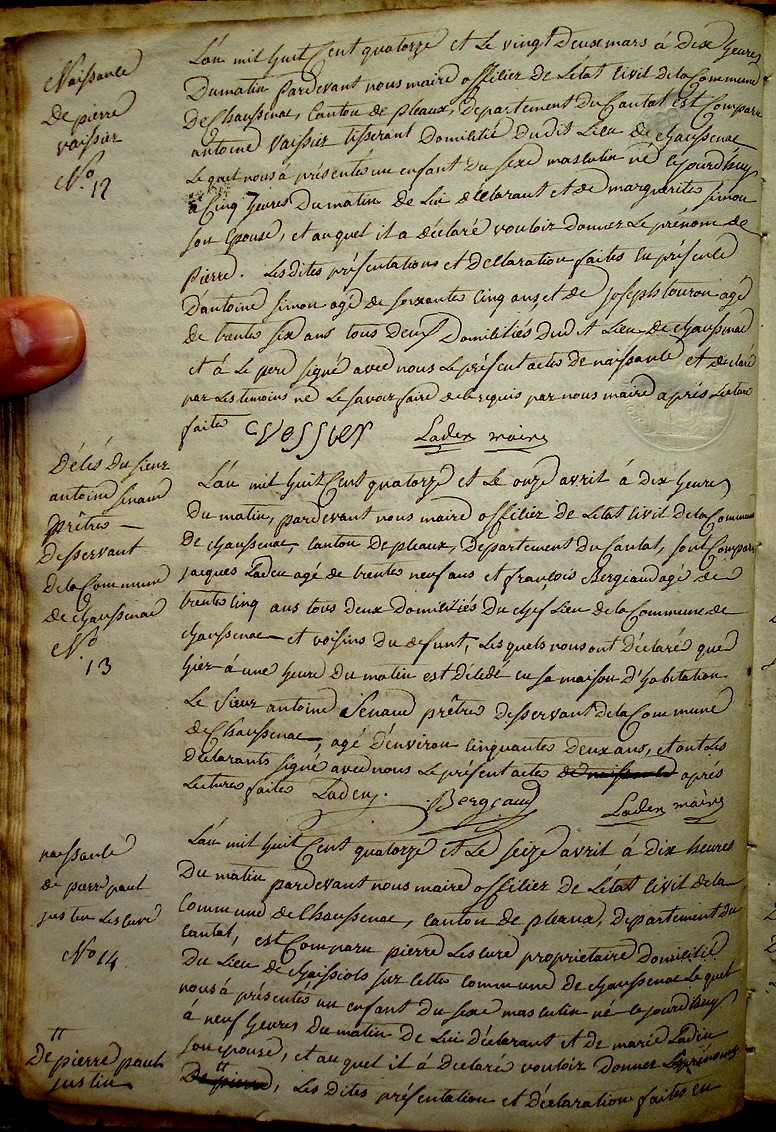 Naissance
De pierre
vaissier
N.o 12
L'an mil huit Cent quatorze et Le vingt Deux mars à Dix heures
Du matin pardevant nous maire officier De L'etat Civil De la Commune
De Chaussenac, Canton de pleaux, Departement Du Cantal est Comparu
antoine vaissier tisserant Domicilié Dudit Lieu De chaussenac
Le quel nous à présenté un enfant Du sexe masculin né Cejourd'huy
à Cinq heures Du matin De Lui déclarant et de marguerite simon
son Epouse, et auquel il a déclaré vouloir Donner Le prénom de
Pierre. Les dites présentations et declaration faites En présence
D'antoine simon agé de soixante cinq ans et de joseph touron agé
De trente six ans tous Deux Domiciliés dud.t Lieu de chaussenac
et à Le pere signé avec nous Le présent acte De naissance et déclaré
par Les temoins ne Le savoir faire de ce requis par nous maire après Lecture
faite Vessier Laden maire
Décès Du sieur
antoine senaud
prêtre
Desservant
de la Commune
de chaussenac
N.o 13
L'an mil huit Cent quatorze et Le onze avril à dix heures
Du matin, pardevant nous maire officier De L'etat Civil De la Commune
De chaussenac, canton De pleaux, Département Du Cantal, sont Comparu
jacques Laden agé de trente neuf ans et françois Bergeaud agé de
trente cinq ans tous deux domiciliés Du chef Lieu de la Commune de
chaussenac et voisins Du defunt, Lesquels nous ont déclaré que
hier à une heure Du matin est décédé en sa maison D'habitation
Le Sieur antoine Senaud prêtre desservant de la Commune
De Chaussenac, agé d'environ cinquante Deux ans, et ont Les
déclarants signé avec nous Le présent acte de naissance après
Lecture faite Laden. Bergeaud Laden maire
naissance
de pierre paul
justin Lescure
N.o 14
L'an mil huit Cent quatorze et Le seize avril à dix heures
Du matin pardevant nous maire officier De L'etat Civil de la
Commune de Chaussenac, canton de pleaux, département du
cantal, est Comparu pierre Lescure propriétaire Domicilié
Du Lieu De chaissiols sur cette commune De chaussenac Le quel
nous à présenté un enfant Du sexe masculin né Cejourd'huy
à neuf heures Du matin De Lui déclarant et de marie Ladin
son epouse, et auquel il à déclaré vouloir Donner Les prénoms
De pierre, Les Dites présentation et déclaration faites en
De pierre paul
justin